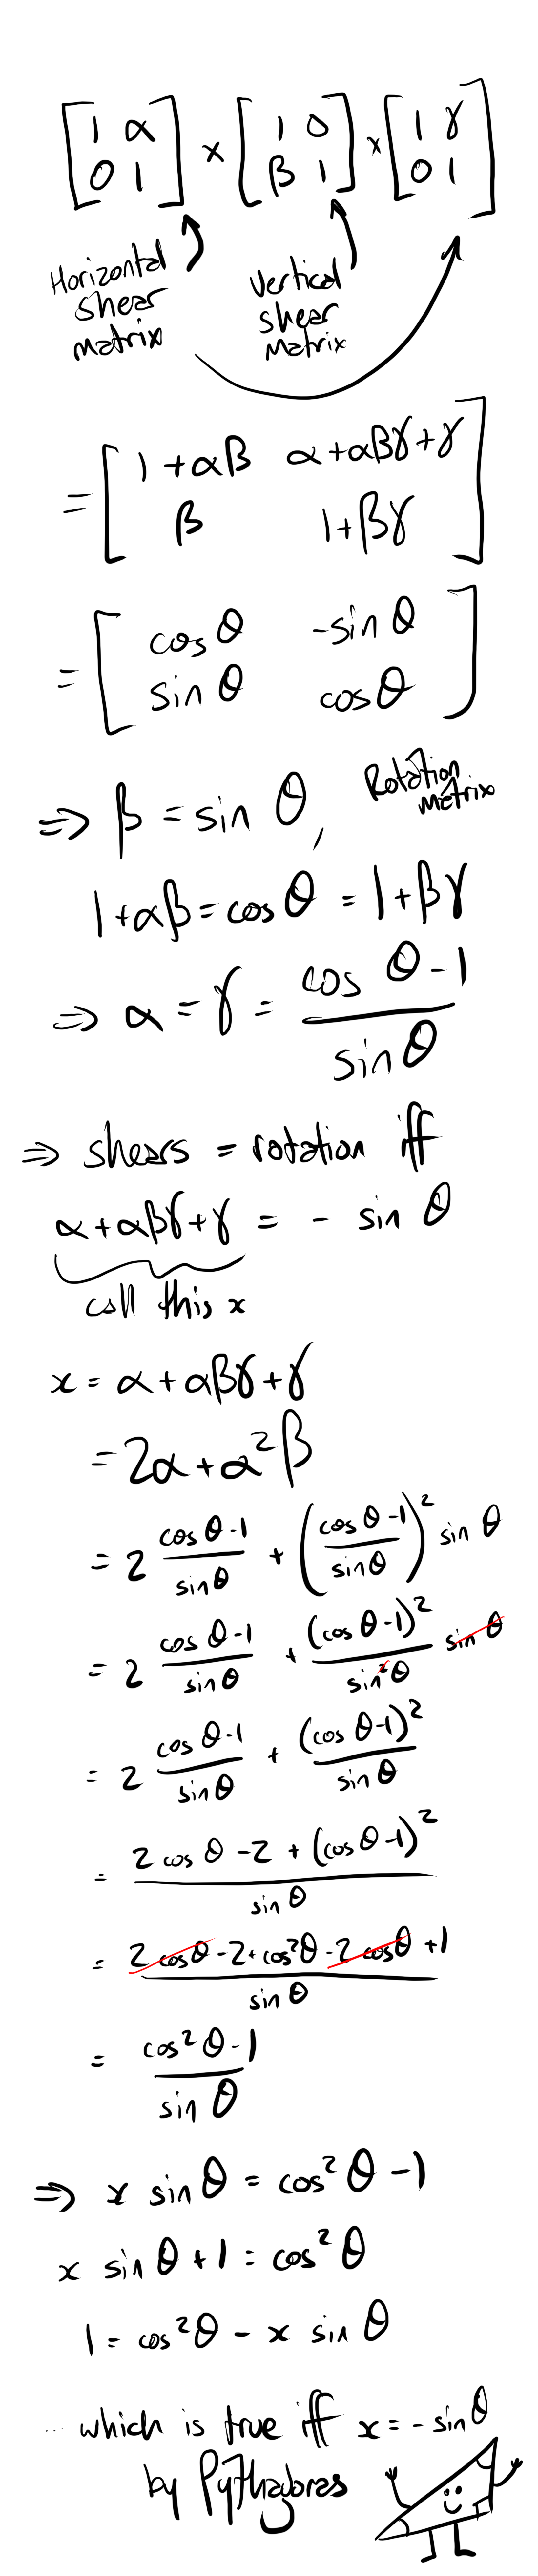 [1 α
0 1] × [1 0
β 1] × [1 γ
0 1]
Horizontal
shear
matrix
Vertical
shear
Matrix
= [1+αβ α+αβγ+γ
β 1+βγ]
= [cos θ -sin θ
sin θ cos θ]
Rotation
matrix
⇒ β = sin θ,
1+αβ = cos θ = 1+βγ
⇒ α = γ = (cos θ - 1)/(sin θ)
⇒ shears = rotation iff
α+αβγ+γ = - sin θ
call this x
x = α+αβγ+γ
= 2α+α²β
= 2 (cos θ - 1)/(sin θ) + ((cos θ - 1)/(sin θ))² sin θ
= 2 (cos θ - 1)/(sin θ) + (cos θ - 1)²/(sin² θ) sin θ
= 2 (cos θ - 1)/(sin θ) + (cos θ - 1)²/(sin θ)
= (2 cos θ - 2 + (cos θ - 1)²)/(sin θ)
= (2 cos θ - 2 + cos² θ - 2 cos θ + 1)/(sin θ)
= (cos² θ - 1)/(sin θ)
⇒ x sin θ = cos² θ - 1
x sin θ + 1 = cos² θ
1 = cos² θ - x sin θ
... which is true iff x = - sin θ
by Pythagoras